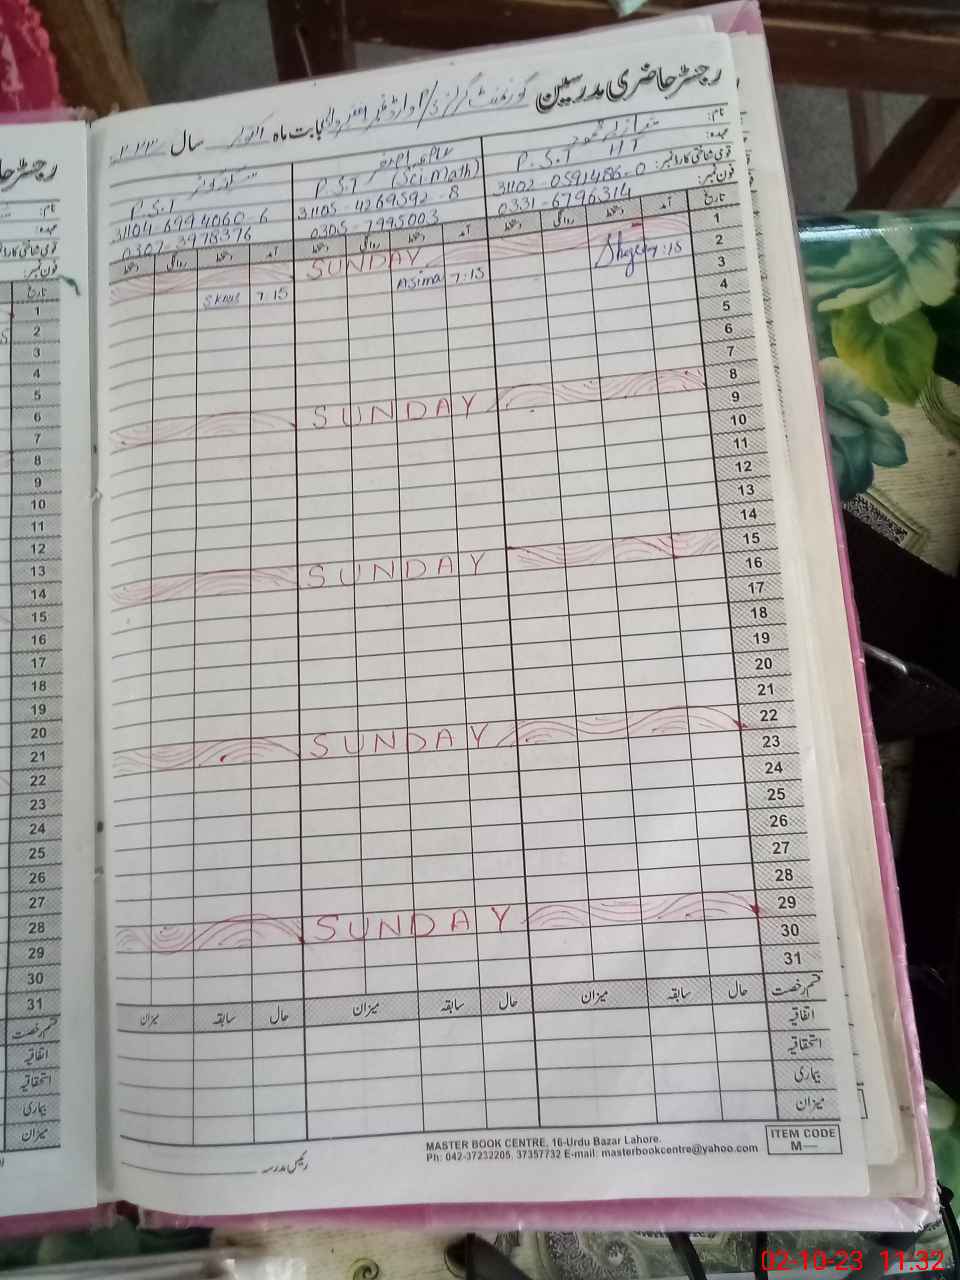 رجسٹر حاضری مدرسین گورنمنٹ گرلز بابت ماہ اکتوبر سال
نام:
عہدہ: P.S.T HT P.S.T (Sci Math) P.S.T
قومی شناختی کارڈ نمبر: 31102-0591486-0 31105-4269592-8 31104-6994060-6
فون نمبر: 0331-6796314 0305-7995003 0307-3978376
تاریخ آمد دستخط روانگی دستخط آمد دستخط روانگی دستخط آمد دستخط روانگی دستخط
1 SUNDAY
2 7:15 Asima 7:15 7:15
3
4
5
6
7
8 SUNDAY
9
10
11
12
13
14
15 SUNDAY
16
17
18
19
20
21
22 SUNDAY
23
24
25
26
27
28
29 SUNDAY
30
31
قسم رخصت حال سابقہ میزان حال سابقہ میزان حال سابقہ میزان
اتفاقیہ
استحقاقیہ
بیماری
میزان
رئیس مدرسہ
MASTER BOOK CENTRE, 16-Urdu Bazar Lahore.
Ph: 042-37232205, 37357732 E-mail: masterbookcentre@yahoo.com
ITEM CODE
M—
رجسٹر حا
نام:
عہدہ:
قومی شناختی کارڈ نمبر:
فون نمبر:
تاریخ
1
2
3
4
5
6
7
8
9
10
11
12
13
14
15
16
17
18
19
20
21
22
23
24
25
26
27
28
29
30
31
قسم رخصت
اتفاقیہ
استحقاقیہ
بیماری
میزان
02-10-23 11:32